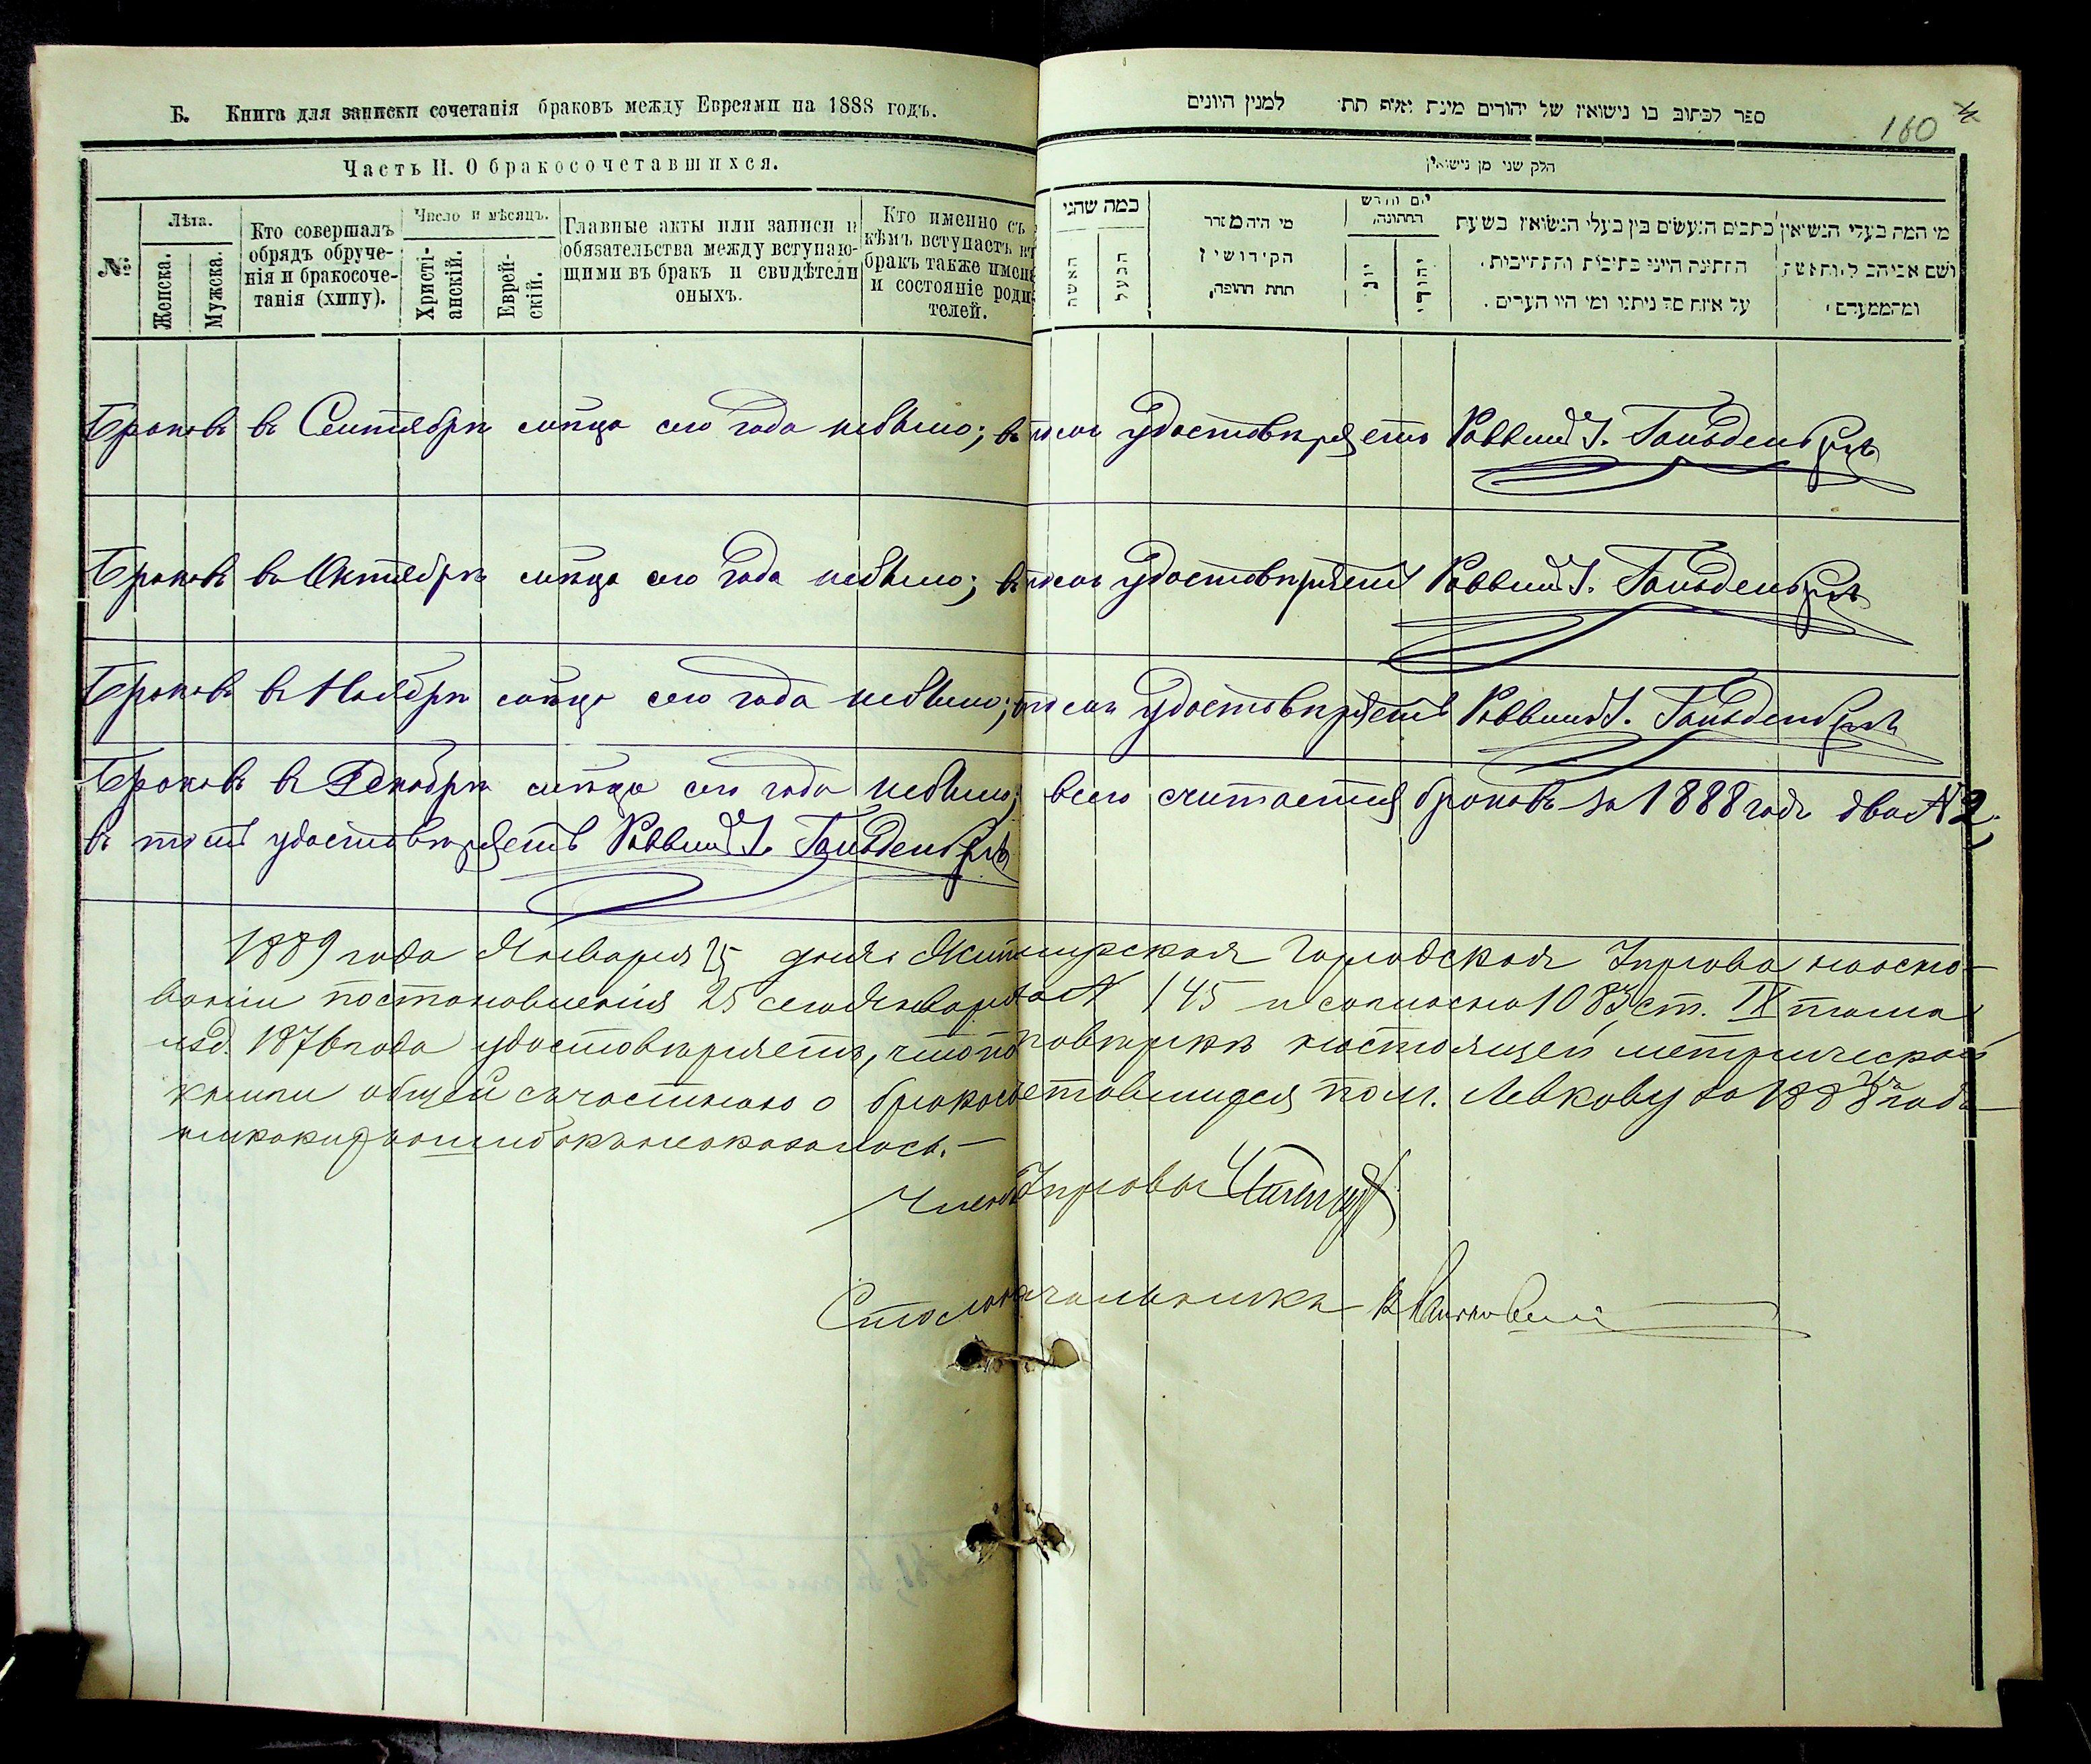 Б. Книга для записки сочетанія браковъ между Евреями на 1888 годъ.
ספר לכתוב בו נישואין של יהודים מינת אלף תת למנין היונים
160
Часть II. О бракосочетавшихся.
חלק שני מן נישואין
№
Лѣта.
Женска.
Мужска.
Кто совершалъ
обрядъ обруче-
нія и бракосоче-
танія (хипу).
Число и мѣсяцъ.
Христі-
анскій.
Еврей-
скій.
Главные акты или записи и
обязательства между вступаю-
щими въ брак и свидѣтели
оныхъ.
Кто именно съ
кѣмъ вступаетъ
бракъ также имена
и состояніе роди-
телей.
כמה שהני
האשה
הבעל
מי היה מסדר
הקידושין
תחת החופה,
יום וחדש
החתונה,
יוני
יהודי
כתבים הנעשים בין בעלי הנשואין בשעת
החתונה היינו כתיבות והתחייבות,
על איזה סך ניתנו ומי היו העדים.
מי המה בעלי הנשואין
ושם אביהם
ומהמעמדם
Браковъ въ Сентябрѣ мѣсяцѣ сего года небыло; въ томъ удостовѣряетъ Раввинъ І. Гольденбергъ
Браковъ въ Октябрѣ мѣсяцѣ сего года небыло; въ томъ удостовѣряетъ Раввинъ І. Гольденбергъ
Браковъ въ Ноябрѣ мѣсяцѣ сего года небыло; въ томъ удостовѣряетъ Раввинъ І. Гольденбергъ
Браковъ въ Декабрѣ мѣсяцѣ сего года небыло; всего считается браковъ за 1888 годъ два № 2;
въ томъ удостовѣряетъ Раввинъ І. Гольденбергъ
1889 года Января 25 дня Житомирская Городская Управа на осно-
ваніи постановленія 25 сего Января за № 145 и согласно 1083 ст. IX тома
изд. 1876 года удостовѣряетъ, что по повѣркѣ настоящей метрической
книги общей съ частною о бракосочетавшихся по м. Левкову за 1888й годъ
никакихъ ошибокъ неоказалось.—
Членъ Управы
Столоначальникъ